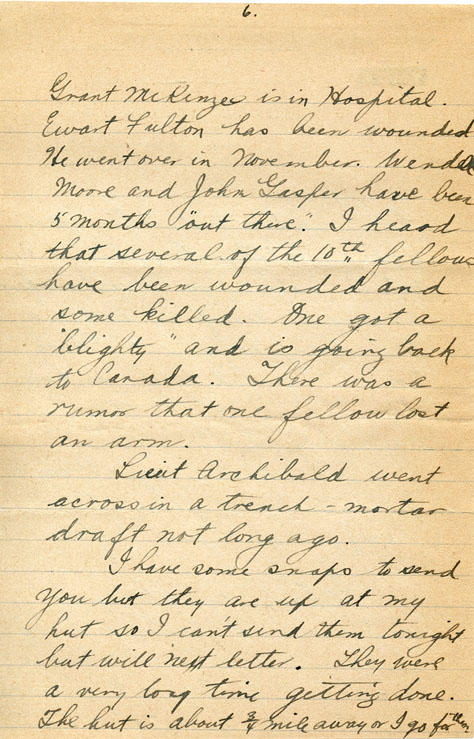 6.
Grant McKenzee is in Hospital.
Ewart Fulton has been wounded
He went over in November. Wendell
Moore and John Gasper have been
5 months "out there". I heard
that several of the 10th fellows
have been wounded and
some killed. One got a
"blighty" and is going back
to Canada. There was a
rumor that one fellow lost
an arm.
Lieut Archibald went
across in a trench-mortar
draft not long ago.
I have some snaps to send
you but they are up at my
hut so I can't send them tonight
but will next letter. They were
a very long time getting done.
The hut is about 3/4 mile away or I go for them